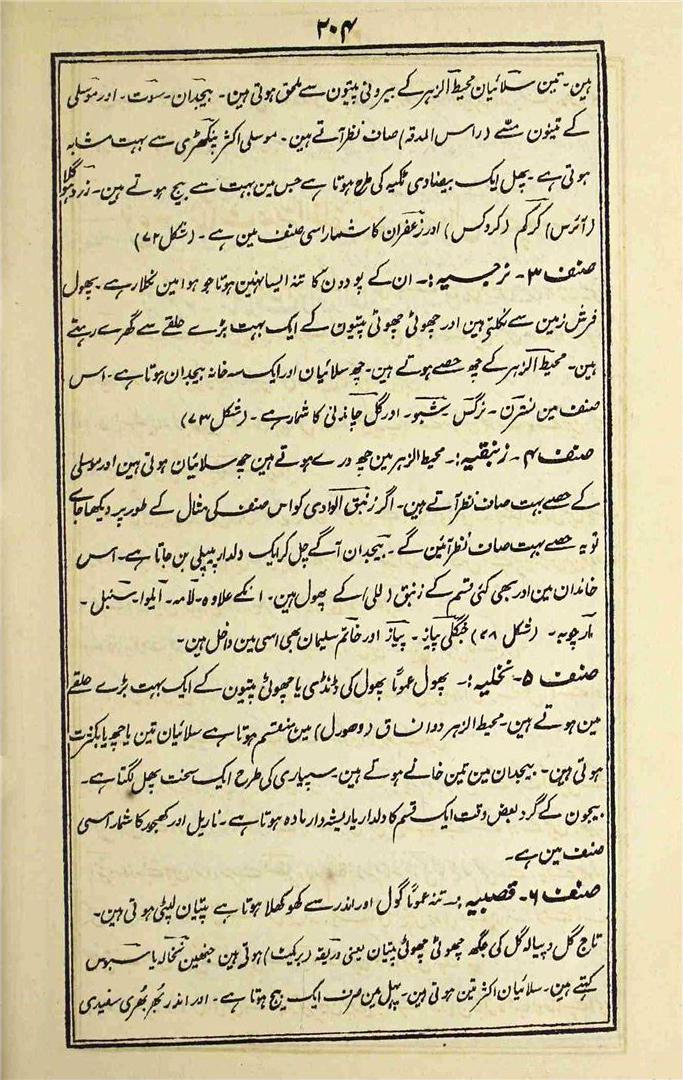 ۲۰۴
ہین۔ تین سلائیان محیط الزہر کے بیرونی پتیون سے ملحق ہوتی ہین۔ بیجدان۔ سوت۔ اور موسلی
کے تینون سے (راس المدقہ) صاف نظر آتے ہین۔ موسلی اکثر پنکھڑی سے بہت مشابہ
ہوتی ہے پھل ایک بیضاوی ٹکیہ کی طرح ہوتا ہے جس مین بہت سے بیج ہوتے ہین۔ زرد
(آئرس) کرکم (کروکس) اور زعفران کا شمار اسی صنف مین ہے۔ (شکل ۷۲)
صنف ۳۔ نرجسیہ:۔ ان کے پودون کا تنہ ایسا نہین ہوتا جو ہوا مین نکلا رہے پھول
فرش زمین سے نکلتے ہین اور چھوٹی چھوٹی پتیون کے ایک بہت بڑے حلقے سے گھرے رہتے
ہین۔ محیط الزہر کے چھ حصے ہوتے ہین۔ چھ سلائیان اور ایک سہ خانہ بیجدان ہوتا ہے۔ اس
صنف مین نسترن۔ نرگس شبو۔ اور گل چاندنی کا شمار ہے۔ (شکل ۷۳)
صنف ۴۔ زنبقیہ:۔ محیط الزہر مین چھ درے ہوتے ہین چھ سلائیان ہوتی ہین اور موسلی
کے حصے بہت صاف نظر آتے ہین۔ اگر زنبق الوادی کو اس صنف کی مثال کے طور پر دیکھا جاے
تو یہ حصے بہت صاف نظر آئین گے۔ بیجدان آگے چل کر ایک دلدار پیپلی بن جاتا ہے۔ اس
خاندان مین اور بھی کئی قسم کے زنبق (للی) کے پھول ہین۔ انکے علاوہ۔ لامہ۔ ایلوا۔ سنبل۔
مارچوبہ۔ (شکل ۷۸) جنگلی پیاز۔ پیاز اور خاتم سلیمان بھی اسی مین داخل ہین۔
صنف ۵۔ نخلیہ:۔ پھول عموماً پھول کی ڈنڈسی یا چھوٹی پتیون کے ایک بہت بڑے حلقے
مین ہوتے ہین۔ محیط الزہر دو انساق (وصورل) مین منقسم ہوتا ہے سلائیان تین یا چھ یا بکثرت
ہوتی ہین۔ بیجدان مین تین خانے ہوتے ہین سپیاری کی طرح ایک سخت پھل لگتا ہے۔
بیجون کے گرد بعض وقت ایک قسم کا دلدار یا ریشہ دار مادہ ہوتا ہے۔ ناریل اور کھجور کا شمار اسی
صنف مین ہے۔
صنف ۶۔ قصبیہ:۔ تنہ عموماً گول اور اندر سے کھوکھلا ہوتا ہے پتیان لپٹی ہوتی ہین۔
تاج گل و پیالہ گل کی جگہ چھوٹی چھوٹی پتیان یعنی وریقہ (برکیٹ) ہوتی ہین جنھین نخالہ یا سبوس
کہتے ہین۔ سلائیان اکثر تین ہوتی ہین۔ پھل مین صرف ایک بیج ہوتا ہے۔ اور اندر بھر بھری سفیدی